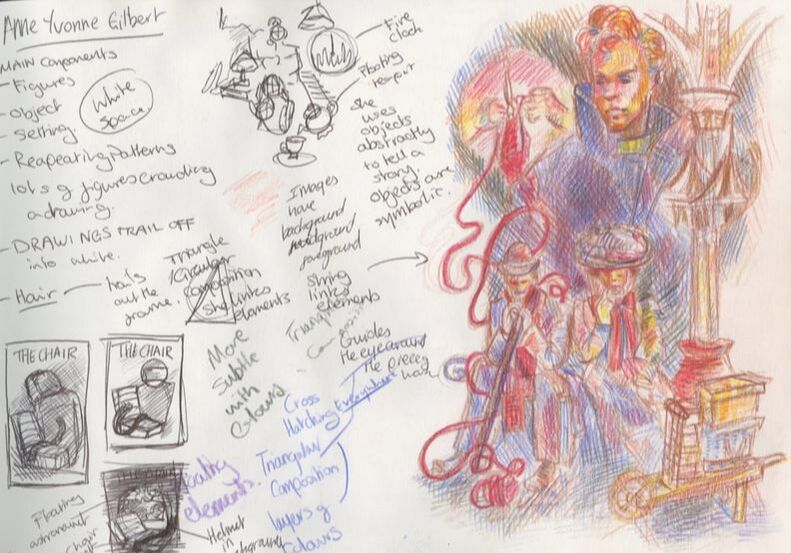 Anne Yvonne Gilbert
MAIN Components
- Figures
- Object
- Setting.
- Reapeating Patterns
lots of figures crowding
a drawing.
- DRAWINGS TRAIL OFF
into white.
- Hair
White
Space
Fire
clock
Floating
She
uses
objects
abstractly
to tell a
story.
objects are
symbolic.
Images
have
background
foreground
String
links
elements
Triangle
Circular
Composition
She links
elements
Guides
the eye around
the
More
subtle
with
Colours
Cross
Hatching Everywhere
Triangular
Composition
layers of
Colours
THE CHAIR
THE CHAIR
Floating
elements.
Floating
astronaut
Chair
Helmet
in